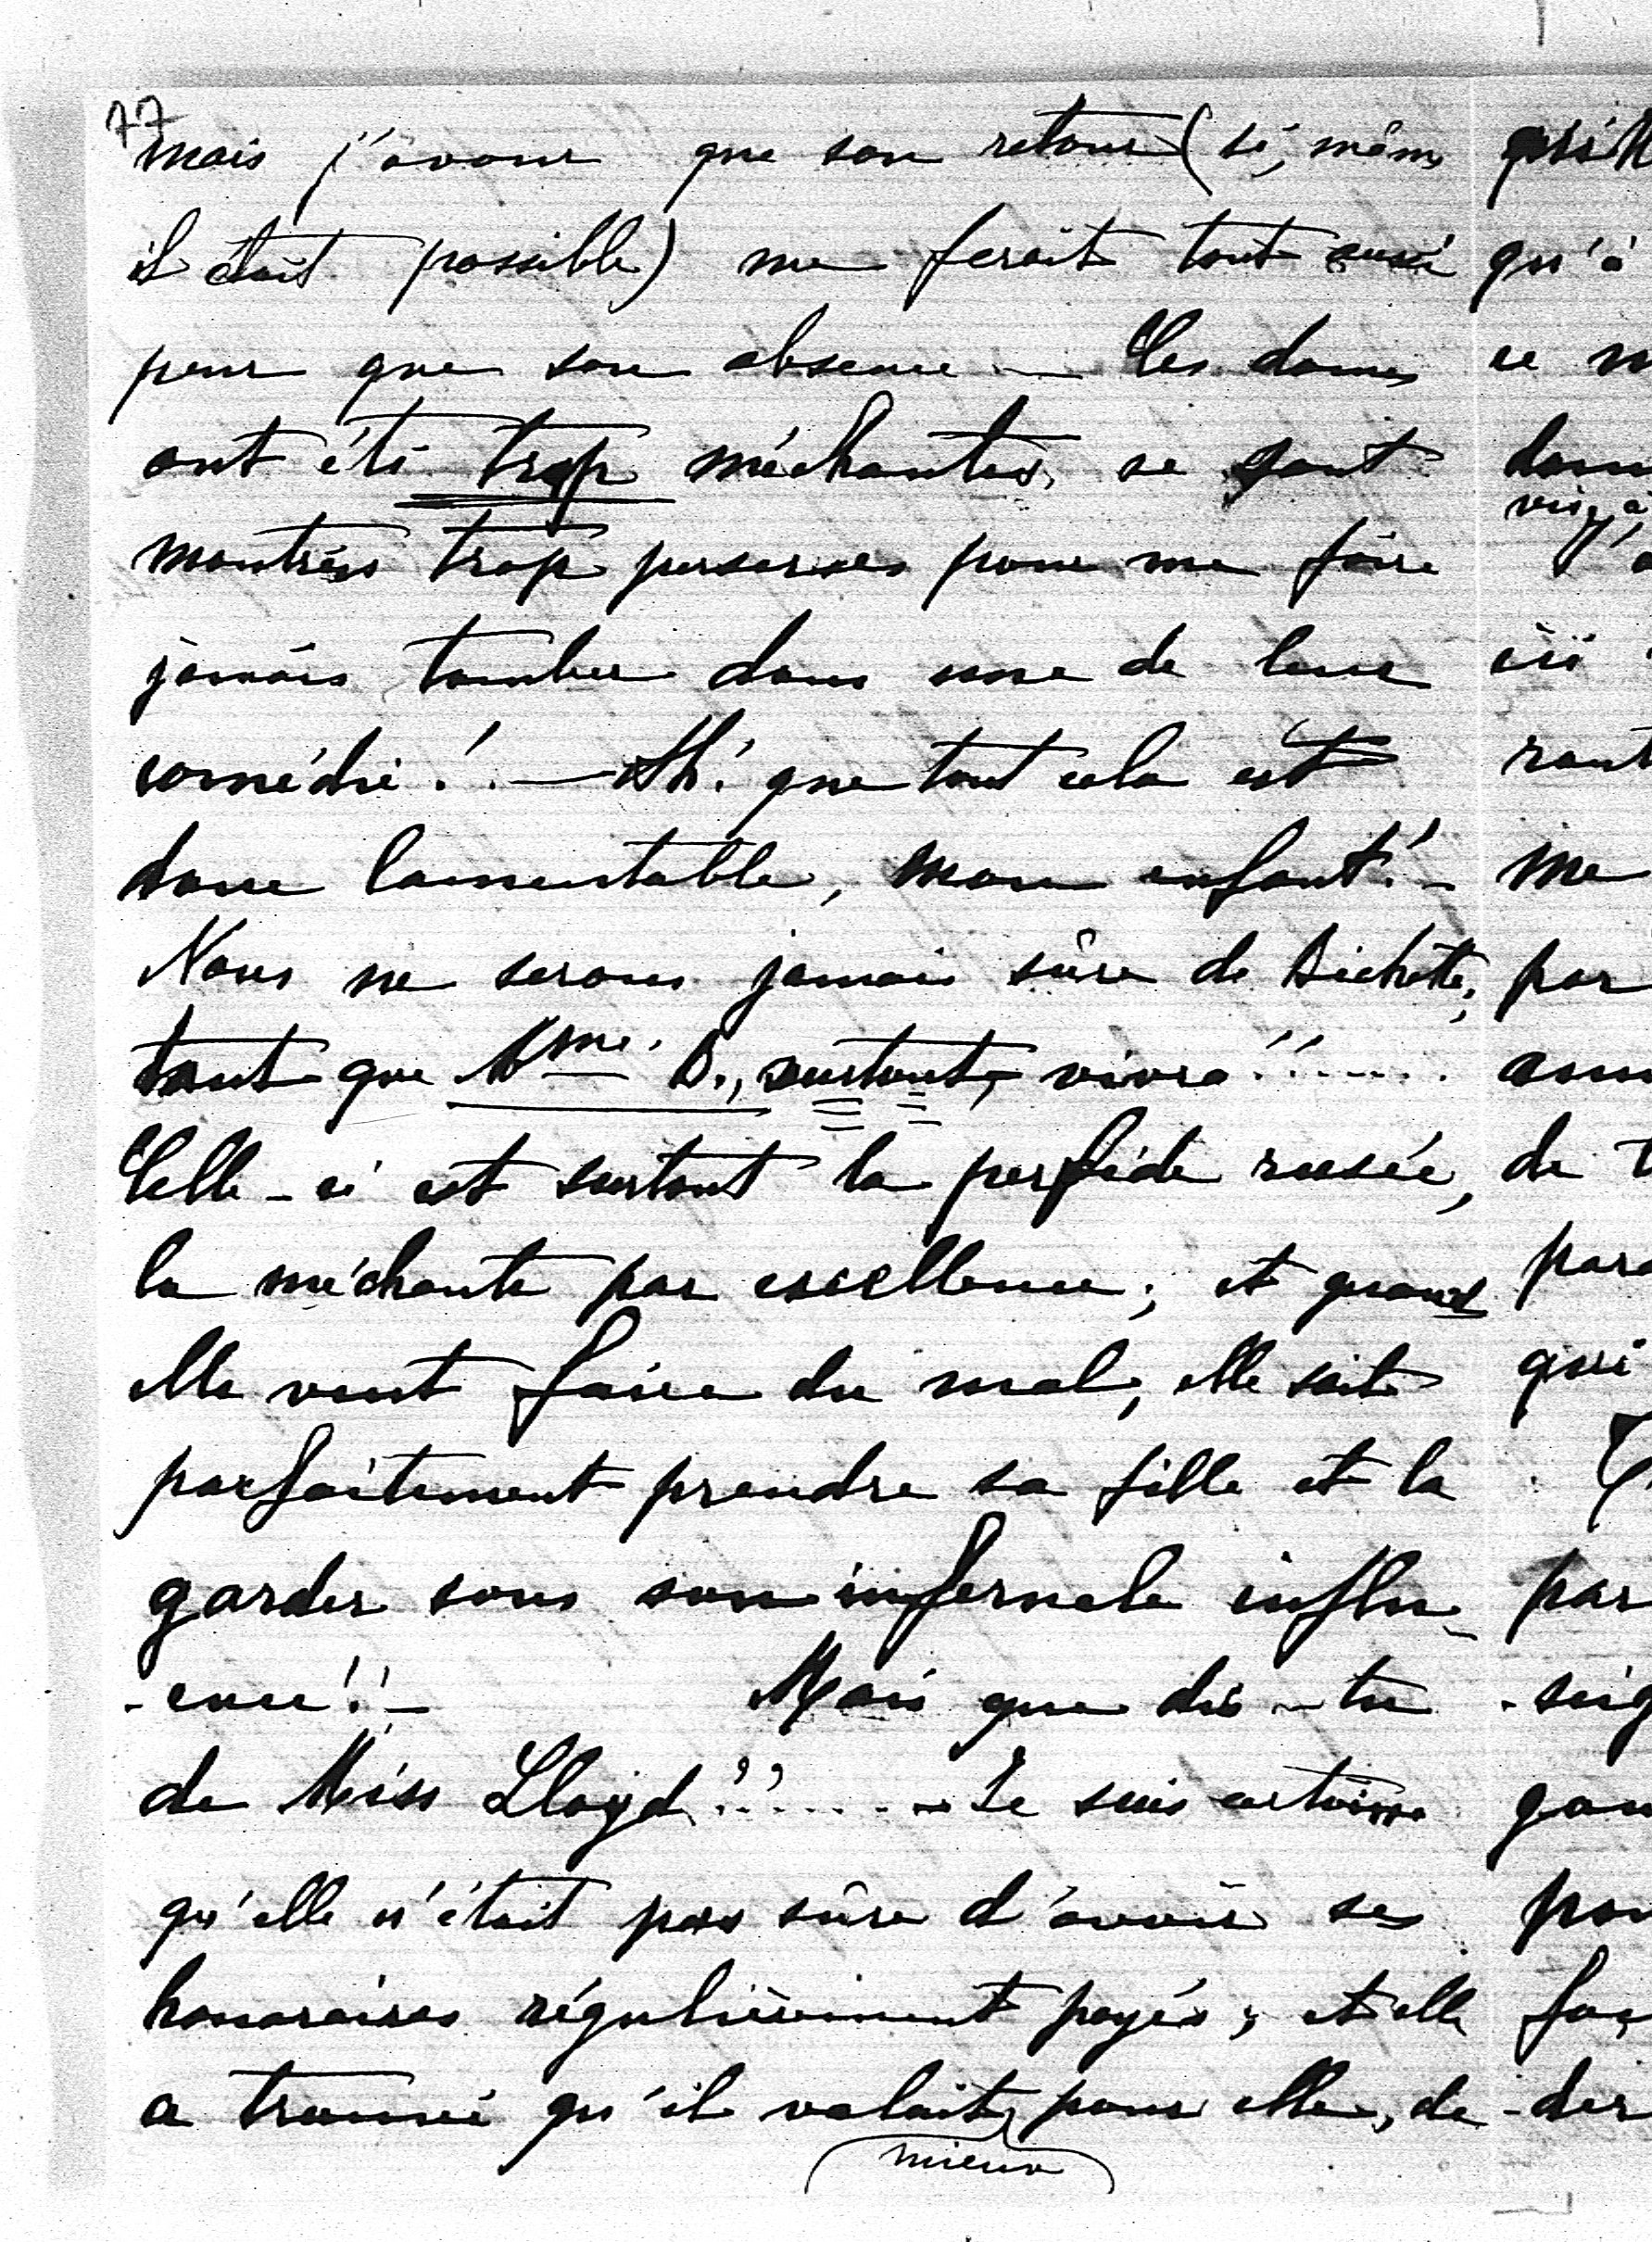 77
mais j'avoue que son retour (si, même
il était possible) me ferait tout aussi
peur que son absence — Ces dames
ont été trop méchantes, se sont
montrées trop perverses pour me faire
jamais tomber dans une de leur
comédie! — Ah! que tout cela est
donc lamentable, mon enfant! —
Nous ne serons jamais sûre de Bichette,
tant que Mme B., surtout, vivra!!.......
Celle-ci est surtout la perfide rusée,
la méchante par excellence; et quand
elle veut faire du mal, elle sait
parfaitement prendre sa fille et la
garder sous son infernale influ-
-ence!! — Mais que dis-tu
de Miss Lloyd??....... Je suis certaine
qu'elle n'était pas sûre d'avoir ses
honoraires régulièrement payés; et elle
a trouvé qu'il valait, pour elle, de
mieux
qu'à
ce
me
par
de
qui
par